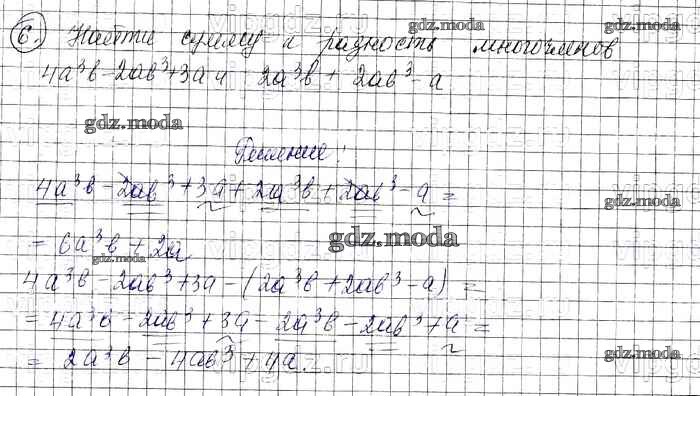 6. Найти сумму и разность многочленов
4a³b - 2ab³ + 3a и 2a³b + 2ab³ - a
Решение:
4a³b - 2ab³ + 3a + 2a³b + 2ab³ - a =
= 6a³b + 2a
4a³b - 2ab³ + 3a - (2a³b + 2ab³ - a) =
= 4a³b - 2ab³ + 3a - 2a³b - 2ab³ + a =
= 2a³b - 4ab³ + 4a.
gdz.moda
gdz.moda
gdz.moda
gdz.moda
gdz.moda
gdz.moda
gdz.moda
gdz.moda